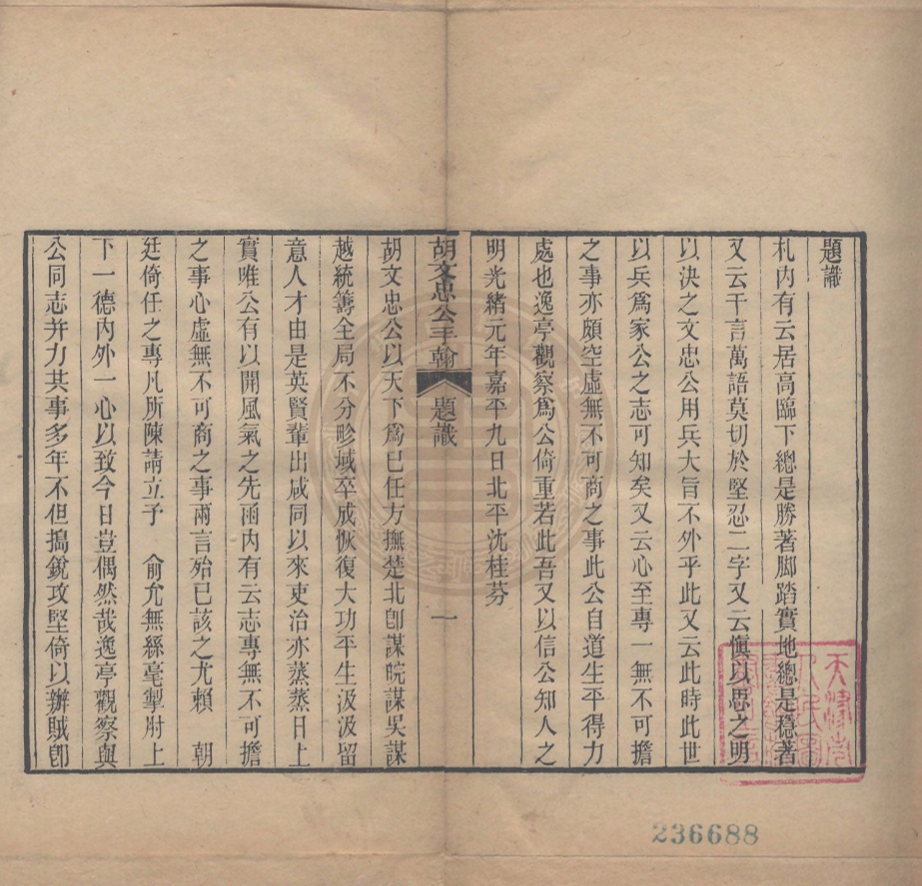 題識
札內有云居高臨下總是勝著脚踏實地總是穩著
又云千言萬語莫切於堅忍二字又云愼以思之明
以決之文忠公用兵大旨不外乎此又云此時此世
以兵爲家公之志可知矣又云心至專一無不可擔
之事亦頗空虛無不可商之事此公自道生平得力
處也逸亭觀察爲公倚重若此吾又以信公知人之
明光緒元年嘉平九日北平沈桂芬
胡文忠公手翰 題識 一
胡文忠公以天下爲已任方撫楚北卽謀皖謀吳謀
越統籌全局不分畛域卒成恢復大功平生汲汲留
意人才由是英賢輩出咸同以來吏治亦蒸蒸日上
實唯公有以開風氣之先函內有云志專無不可擔
之事心虛無不可商之事兩言殆已該之尤賴 朝
廷倚任之專凡所陳請立予 俞允無絲毫掣肘上
下一德內外一心以致今日豈偶然哉逸亭觀察與
公同志并力共事多年不但搗銳攻堅倚以辦賊卽
236688